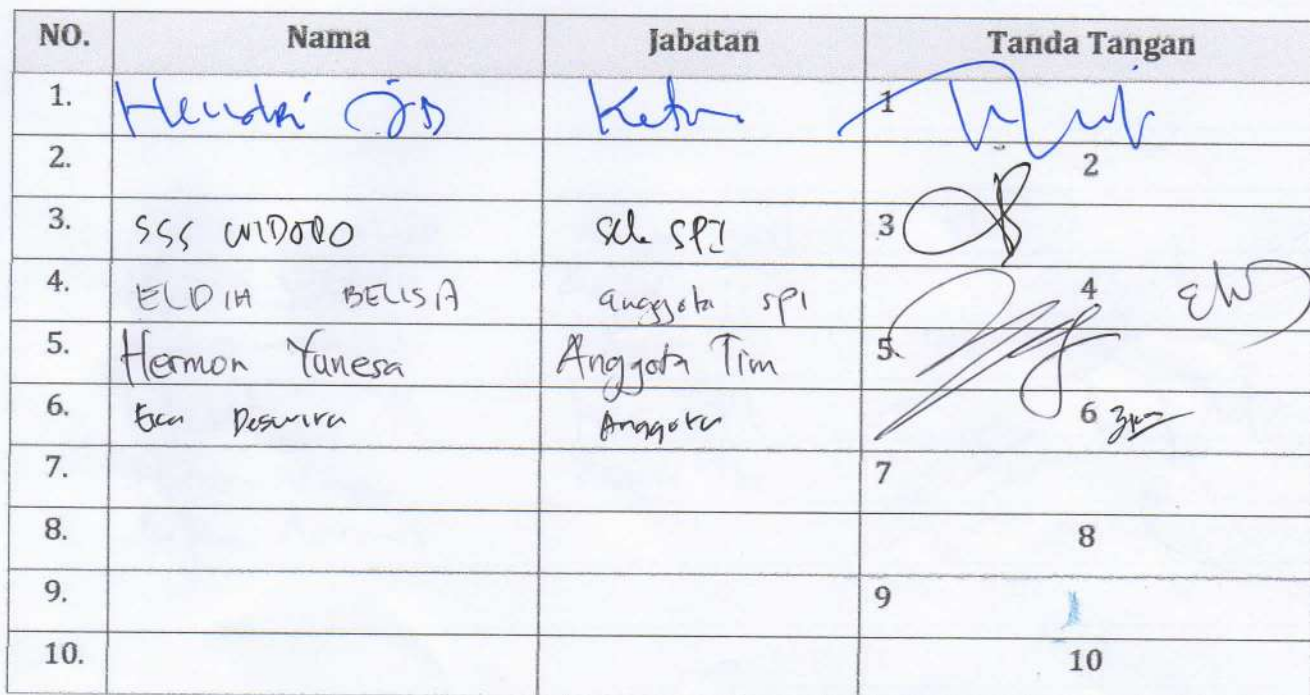 NO. Nama Jabatan Tanda Tangan
1. Hendri Ketua 1
2. 2
3. SSS WIDODO Sek SPI 3
4. ELDIH BELISA anggota SPI 4
5. Hermon Yunesa Anggota Tim 5.
6. Eka Deswira Anggota 6
7. 7
8. 8
9. 9
10. 10